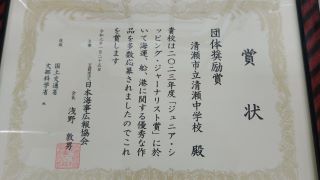 賞状
団体奨励賞
清瀬市立清瀬中学校 殿
貴校は二〇二三年度「ジュニア・シ
ッピング・ジャーナリスト賞」に於
いて海運、船、港に関する優秀な作
品を多数応募されましたのでこれ
を賞します
日本海事広報協会
会長 浅野 敦男
国土交通省
文部科学省